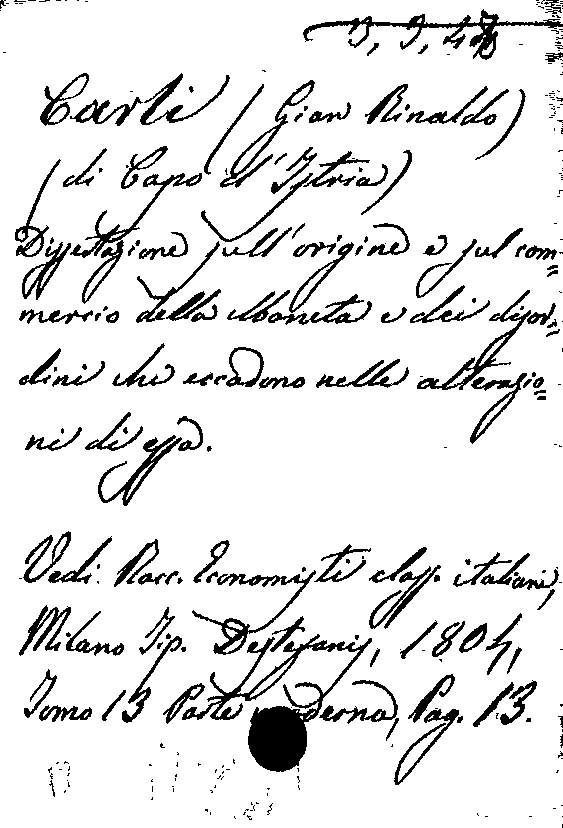 13, 9, 47
Carli (Gian Rinaldo)
(di Capo d'Istria)
Dissertazione sull'origine e sul com=
mercio della Moneta e dei disor=
dini che accadono nelle alterazio=
ni di essa.
Vedi Racc. Economisti class. italiani,
Milano Tip. Destefanis, 1804,
Tomo 13 Parte moderna, Pag. 13.